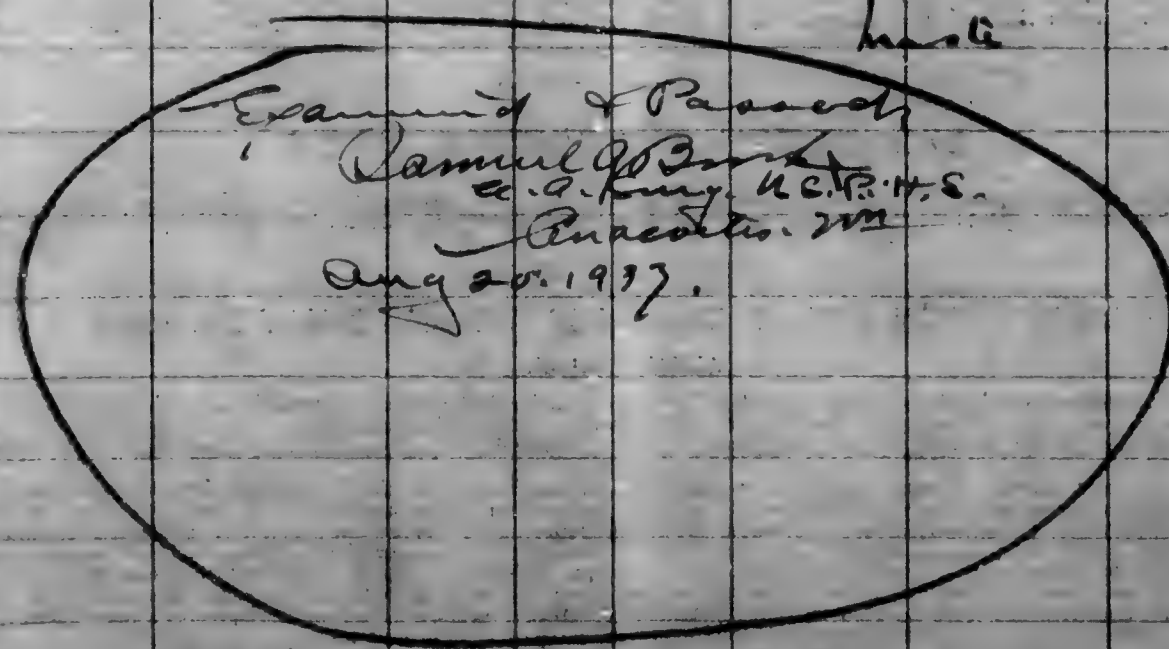 Examin'd & Passed
Samuel G Brooks
a. a. Surg. U.S.P.H.S.
Anacortes. Wn
Aug 25. 1937.